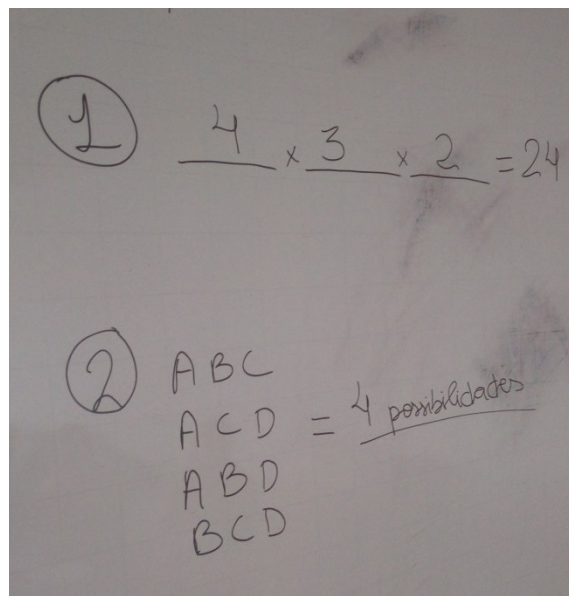 1 4 × 3 × 2 = 24
2 ABC
ACD = 4 possibilidades
ABD
BCD